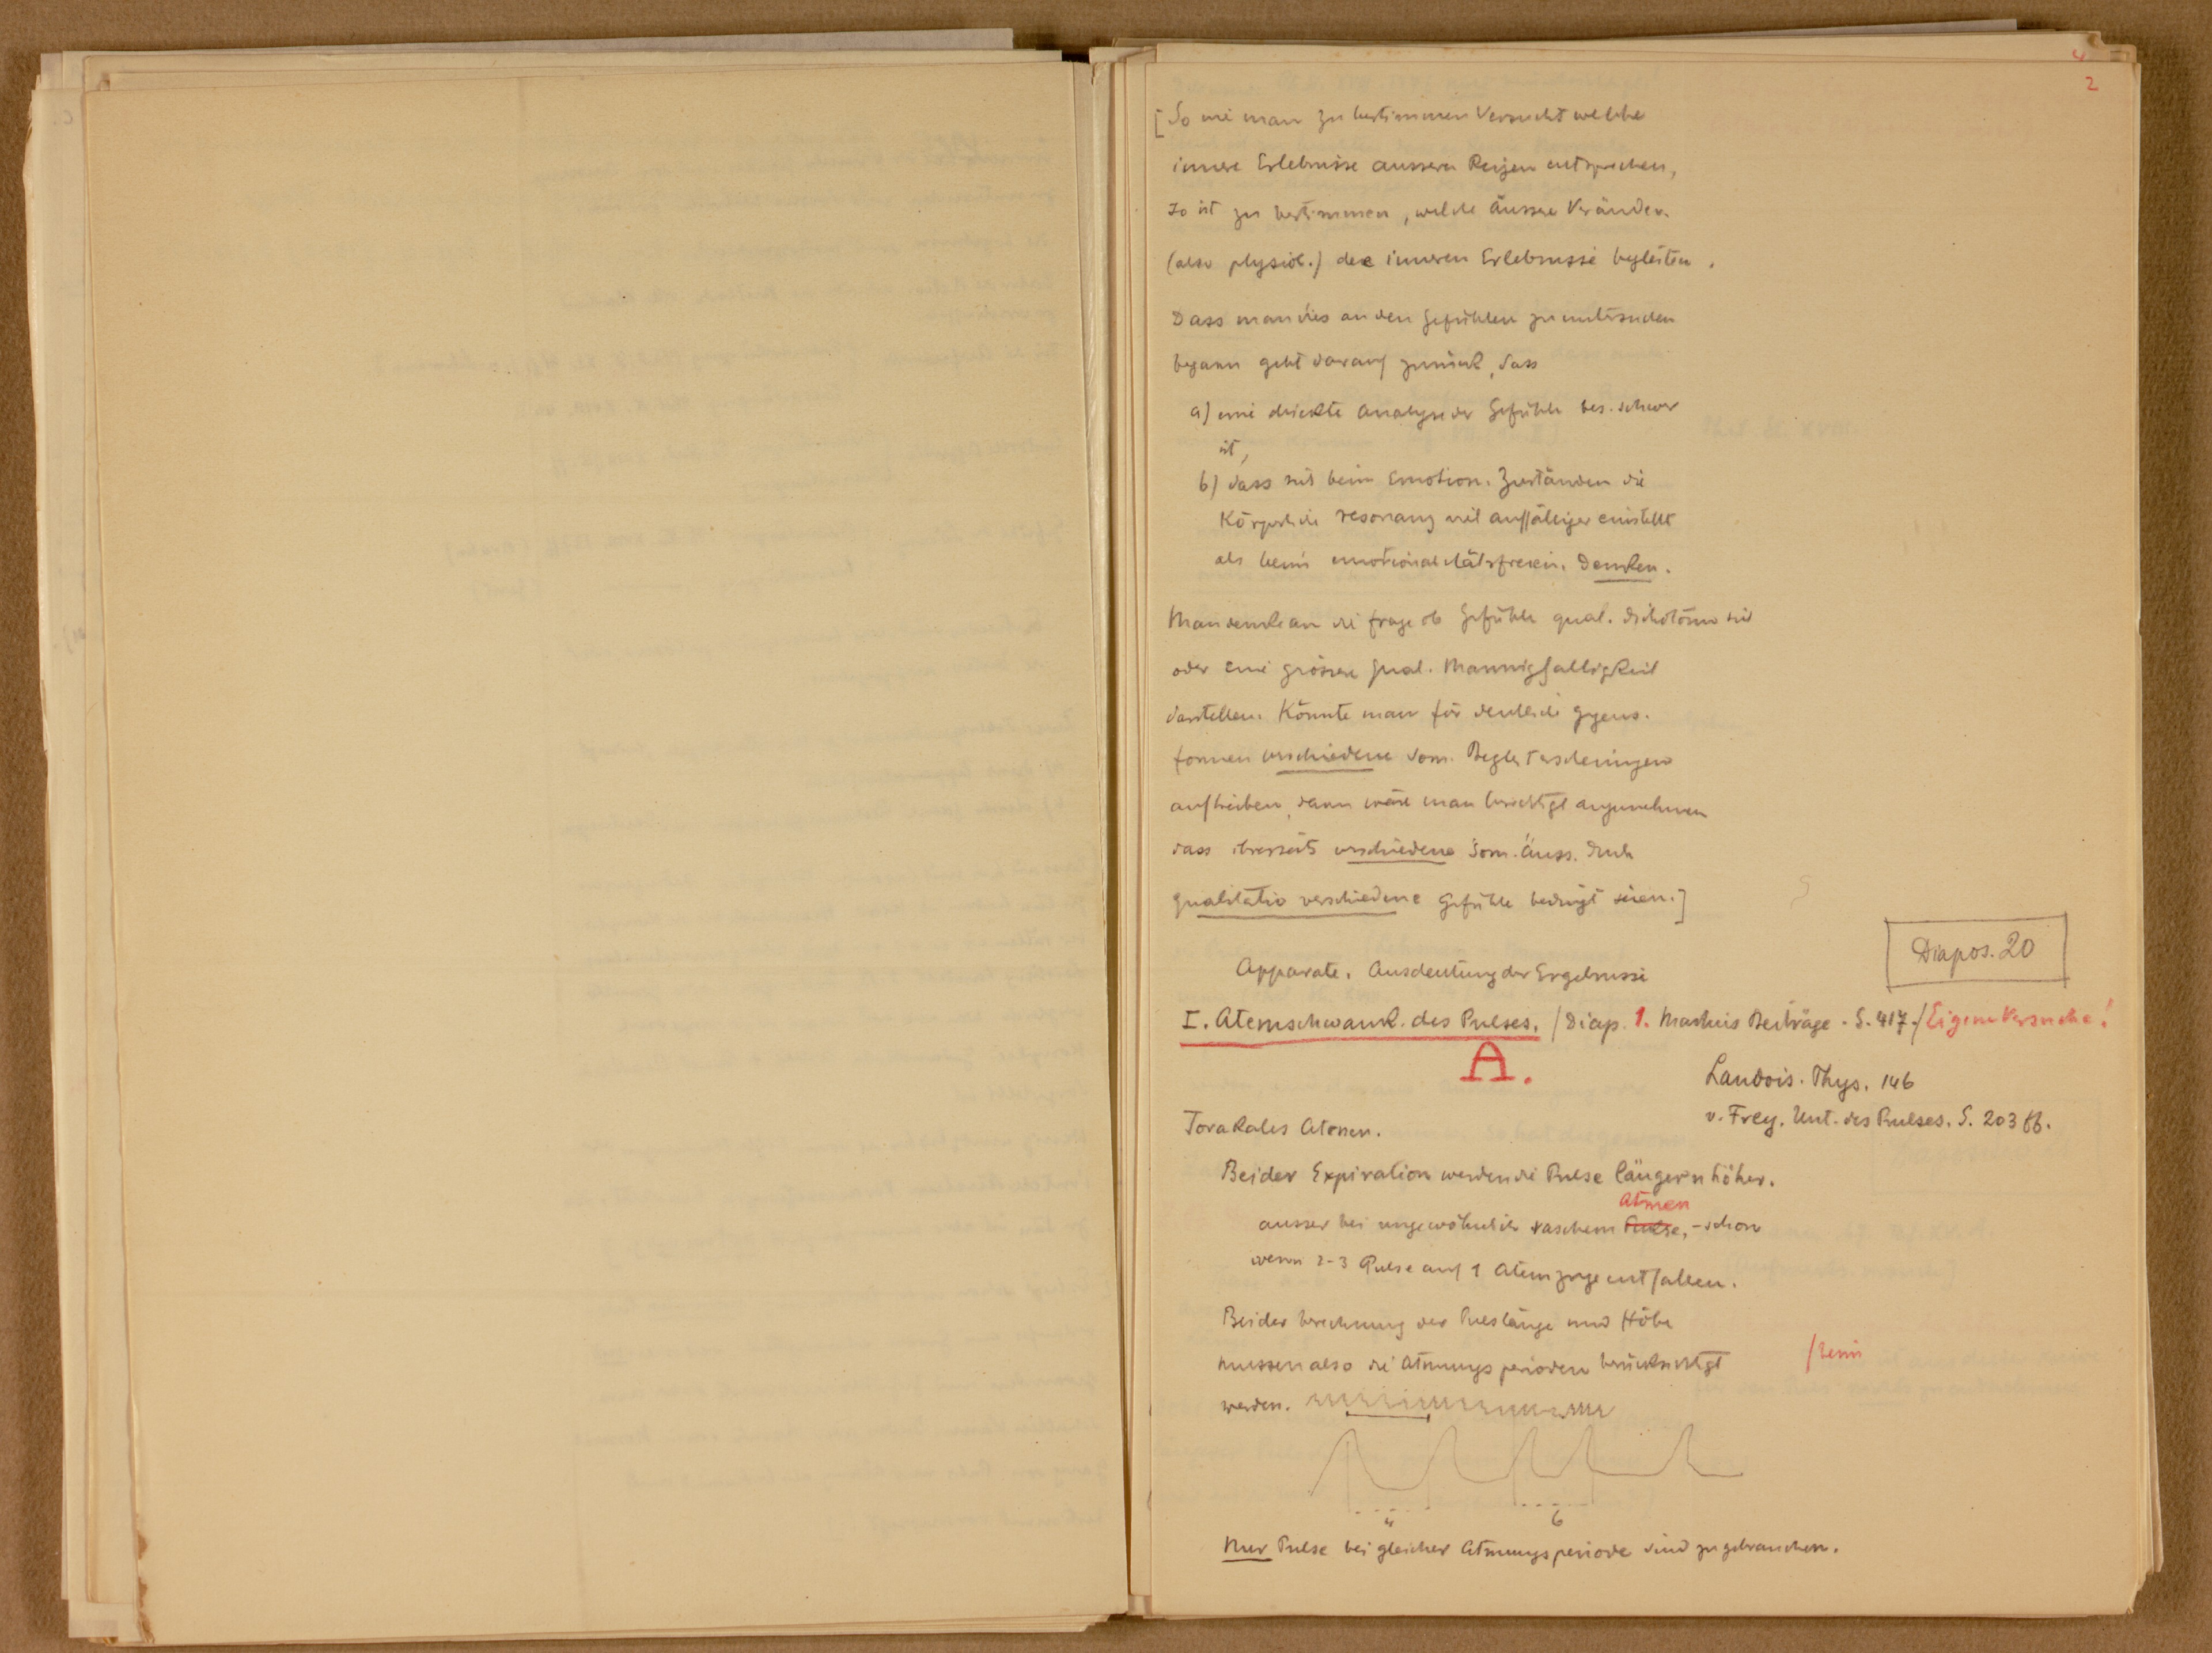 4
2
[So wie man zu bestimmen versucht welche
innere Erlebnisse äussern Reizen entsprechen,
so ist zu bestimmen, welche äussere Veränder.
(also physiol.) die inneren Erlebnisse begleiten.
Dass man dies an den Gefühlen zu untersuchen
begann geht darauf zurück, dass
a) eine direkte Analyse der Gefühle bes. schwer
ist,
b) dass sich beim Emotion. Zuständen die
Körperliche resonanz viel auffälliger einstellt
als beim emotionalitätsfreien. Denken.
Man denke an die frage ob Gefühle qual. dichotom sind
oder eine grössere qual. Mannigfaltigkeit
darstellen. Könnte man für deutliche
formen verschiedene som. Begleiterscheinungen
auftreiben, dann wäre man berechtigt anzunehmen
dass ihrerseits verschiedene som. äuss. durch
qualitativ verschiedene Gefühle bedingt seien.]
Diapos. 20
Apparate. Ausdeutung der Ergebnisse
I. Atemschwank. des Pulses. /Diap. 1. Martius Beiträge. S. 417./ Eigene Versuche!
A.
Landois. Phys. 146
v. Frey. Unt. des Pulses. S. 203 ff.
Torakales Atmen.
Bei der Expiration werden die Pulse länger u höher.
Atmen
ausser bei ungewöhnlich raschem Pulse, - schon
wenn 2-3 Pulse auf 1 Atemzuge entfallen.
Bei der berechnung der Pulslänge und Höhe
muessen also die Atmungsperioden berücksichtigt
/beim
werden.
4 6
Nur Pulse bei gleicher Atmungsperiode sind zu gebrauchen.